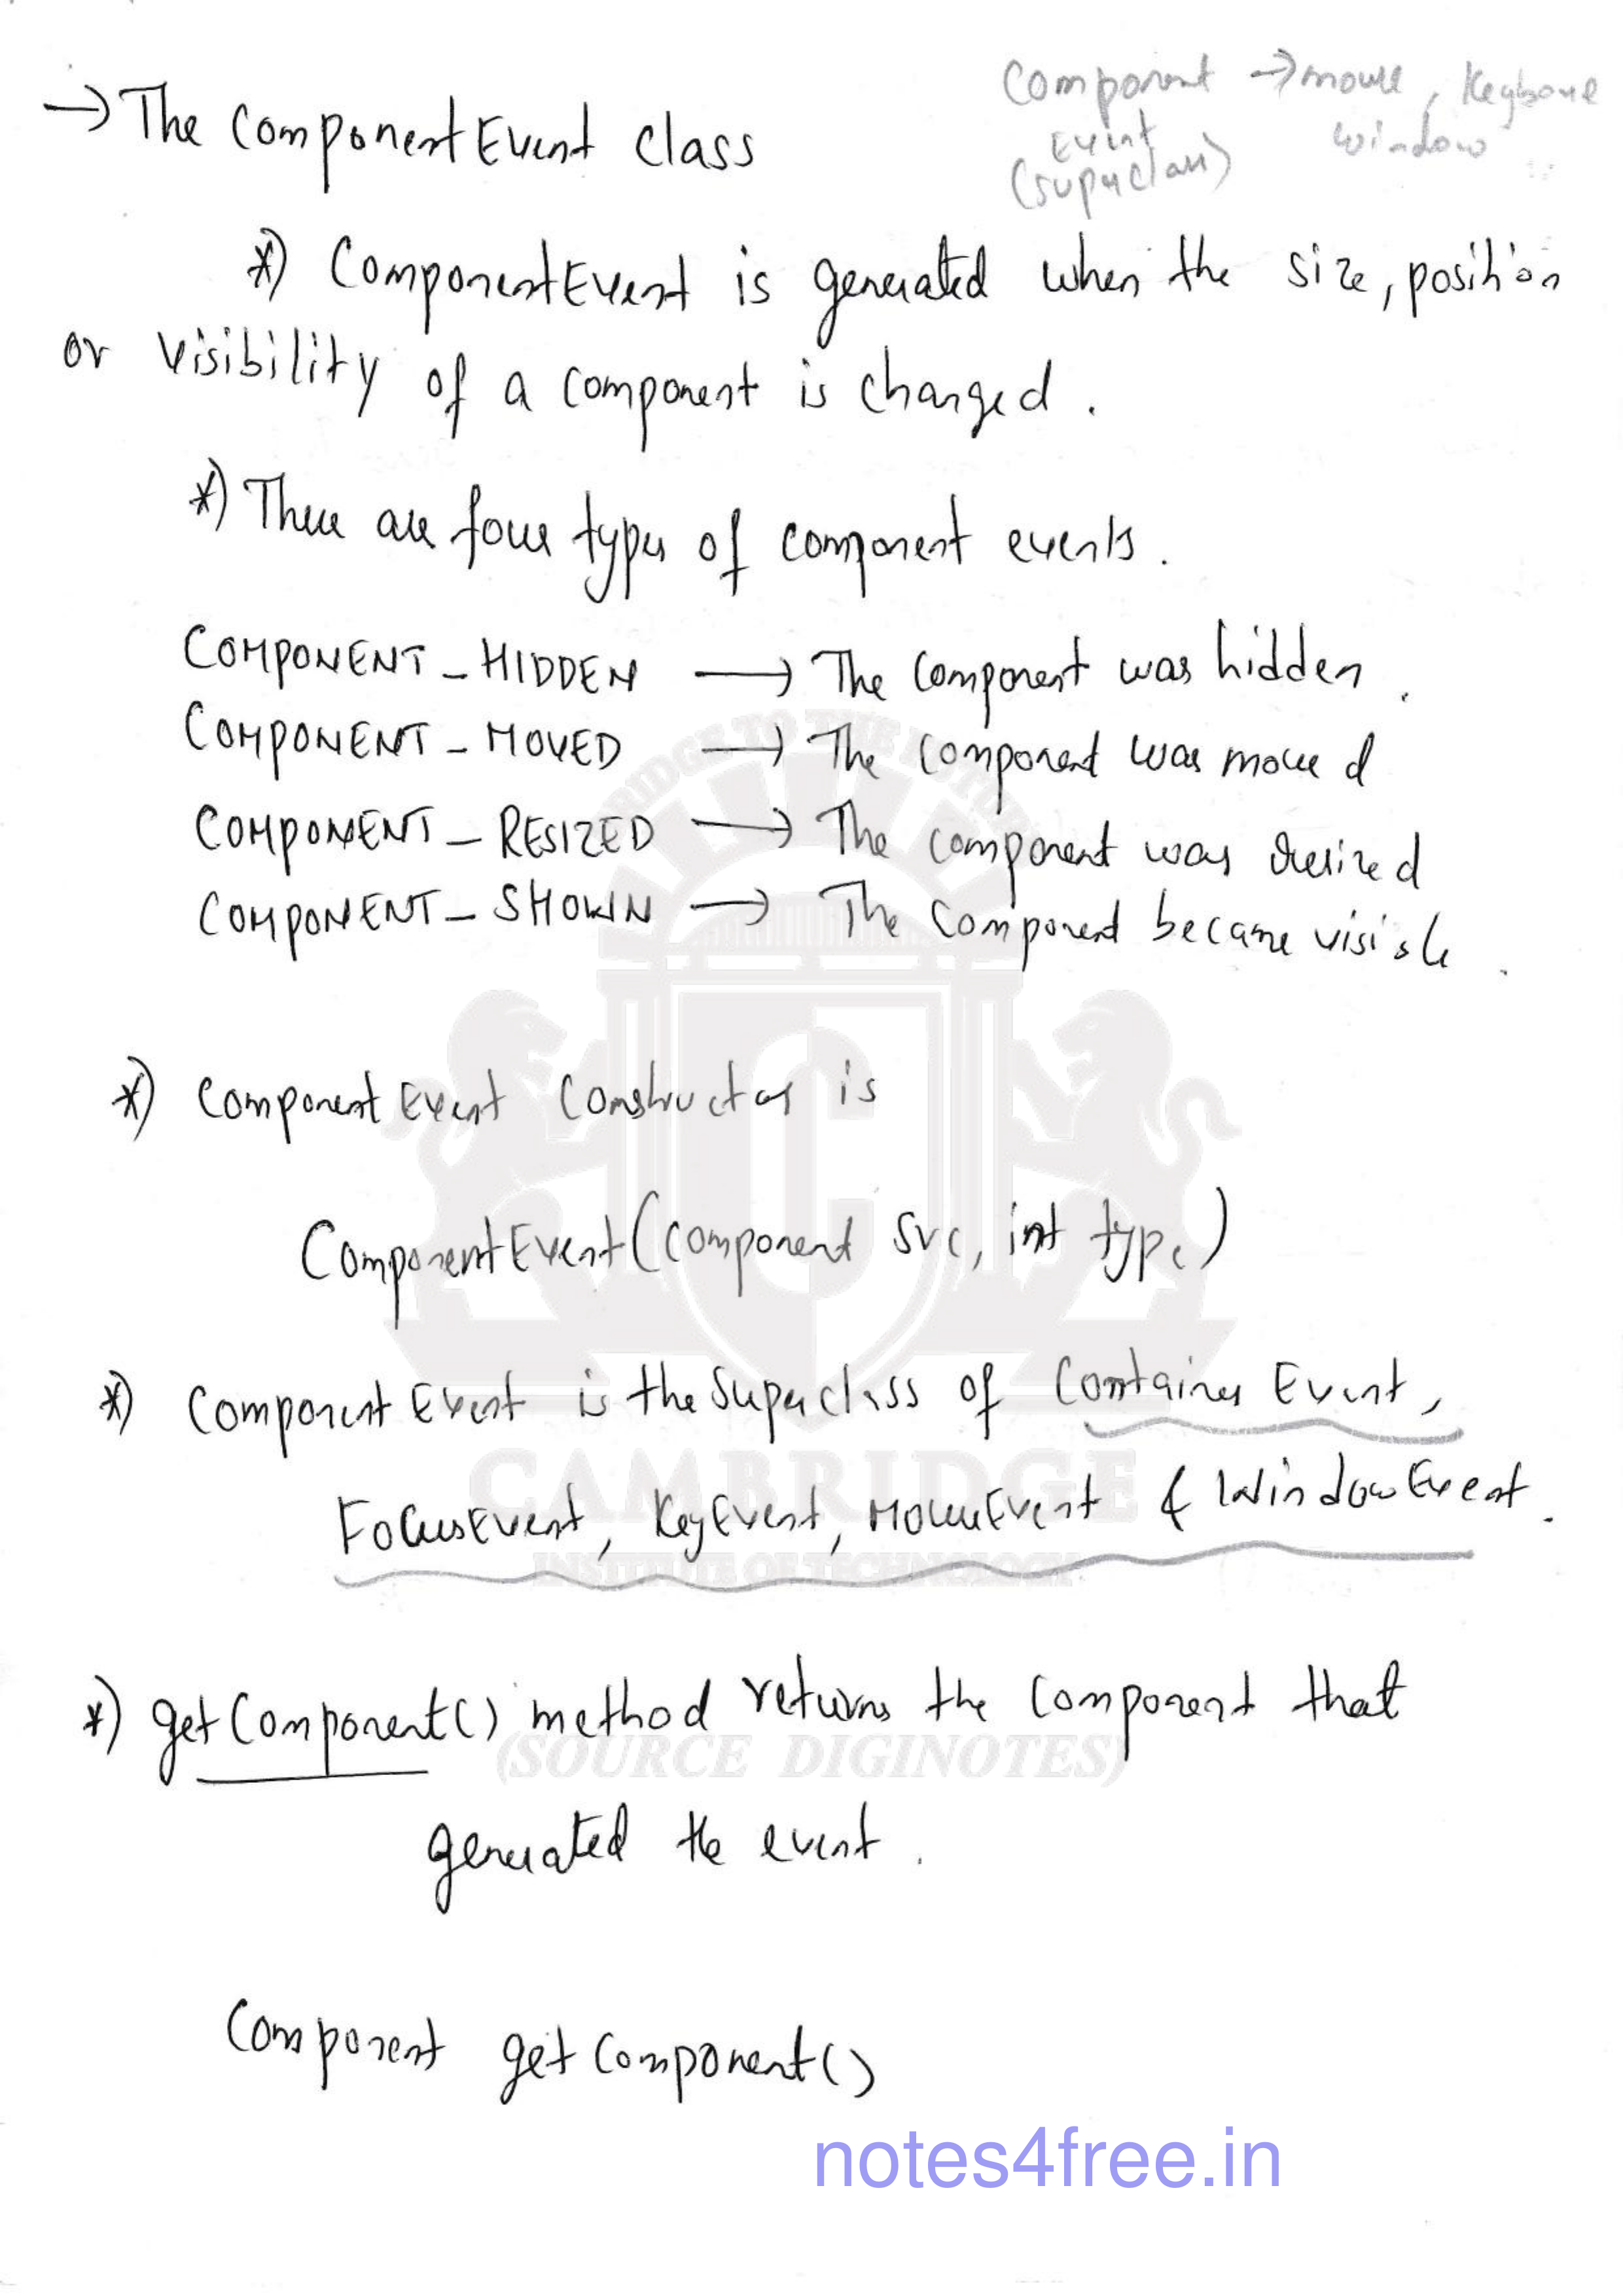 → The ComponentEvent class
Component → mouse, Keyboard
Event window
(superclass)
*) ComponentEvent is generated when the size, position
or visibility of a component is changed.
*) There are four types of component events.
COMPONENT_HIDDEN → The Component was hidden.
COMPONENT_MOVED → The Component was moved
COMPONENT_RESIZED → The component was resized
COMPONENT_SHOWN → The Component became visible.
*) ComponentEvent Constructor is
ComponentEvent(Component src, int type)
*) ComponentEvent is the Superclass of ContainerEvent,
FocusEvent, KeyEvent, MouseEvent & WindowEvent.
*) getComponent() method returns the Component that
generated the event.
Component getComponent()
BRIDGE TO THE FUTURE
CAMBRIDGE
INSTITUTE OF TECHNOLOGY
(SOURCE DIGINOTES)
notes4free.in